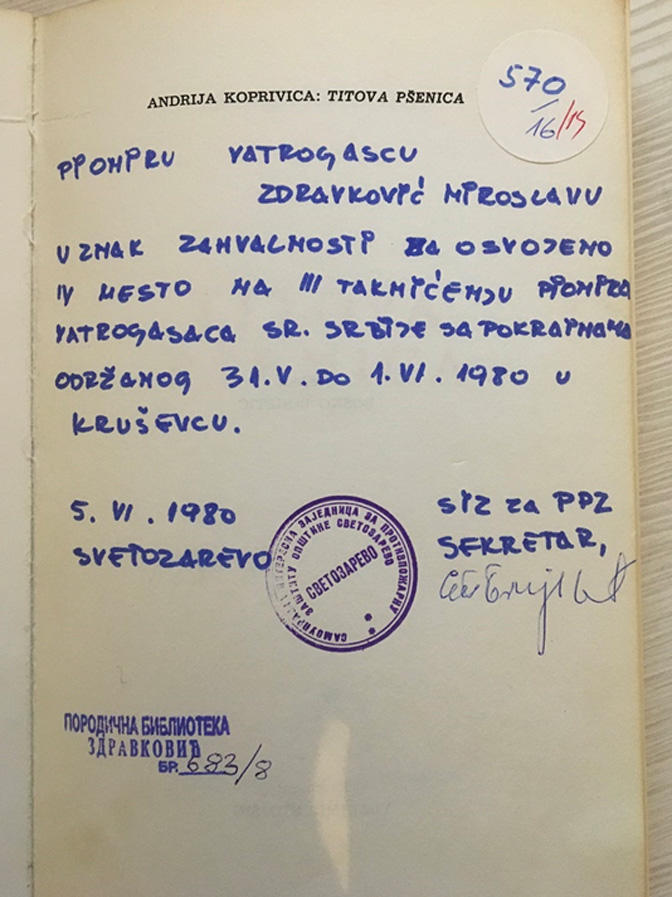 ANDRIJA KOPRIVICA: TITOVA PŠENICA
570
16/15
PIONIRU VATROGASCU
ZDRAVKOVIĆ MIROSLAVU
U ZNAK ZAHVALNOSTI ZA OSVOJENO
IV MESTO NA III TAKMIČENJU PIONIRA
VATROGASACA SR. SRBIJE SA POKRAJINAMA
ODRŽANOG 31.V. DO 1.VI.1980 U
KRUŠEVCU.
5.VI.1980
SVETOZAREVO
SIZ za PPZ
SEKRETAR,
САМОУПРАВНА ИНТЕРЕСНА ЗАЈЕДНИЦА ЗА ПРОТИВПОЖАРНУ
ЗАШТИТУ ОПШТИНЕ СВЕТОЗАРЕВО
СВЕТОЗАРЕВО
ПОРОДИЧНА БИБЛИОТЕКА
ЗДРАВКОВИЋ
БР. 683/8